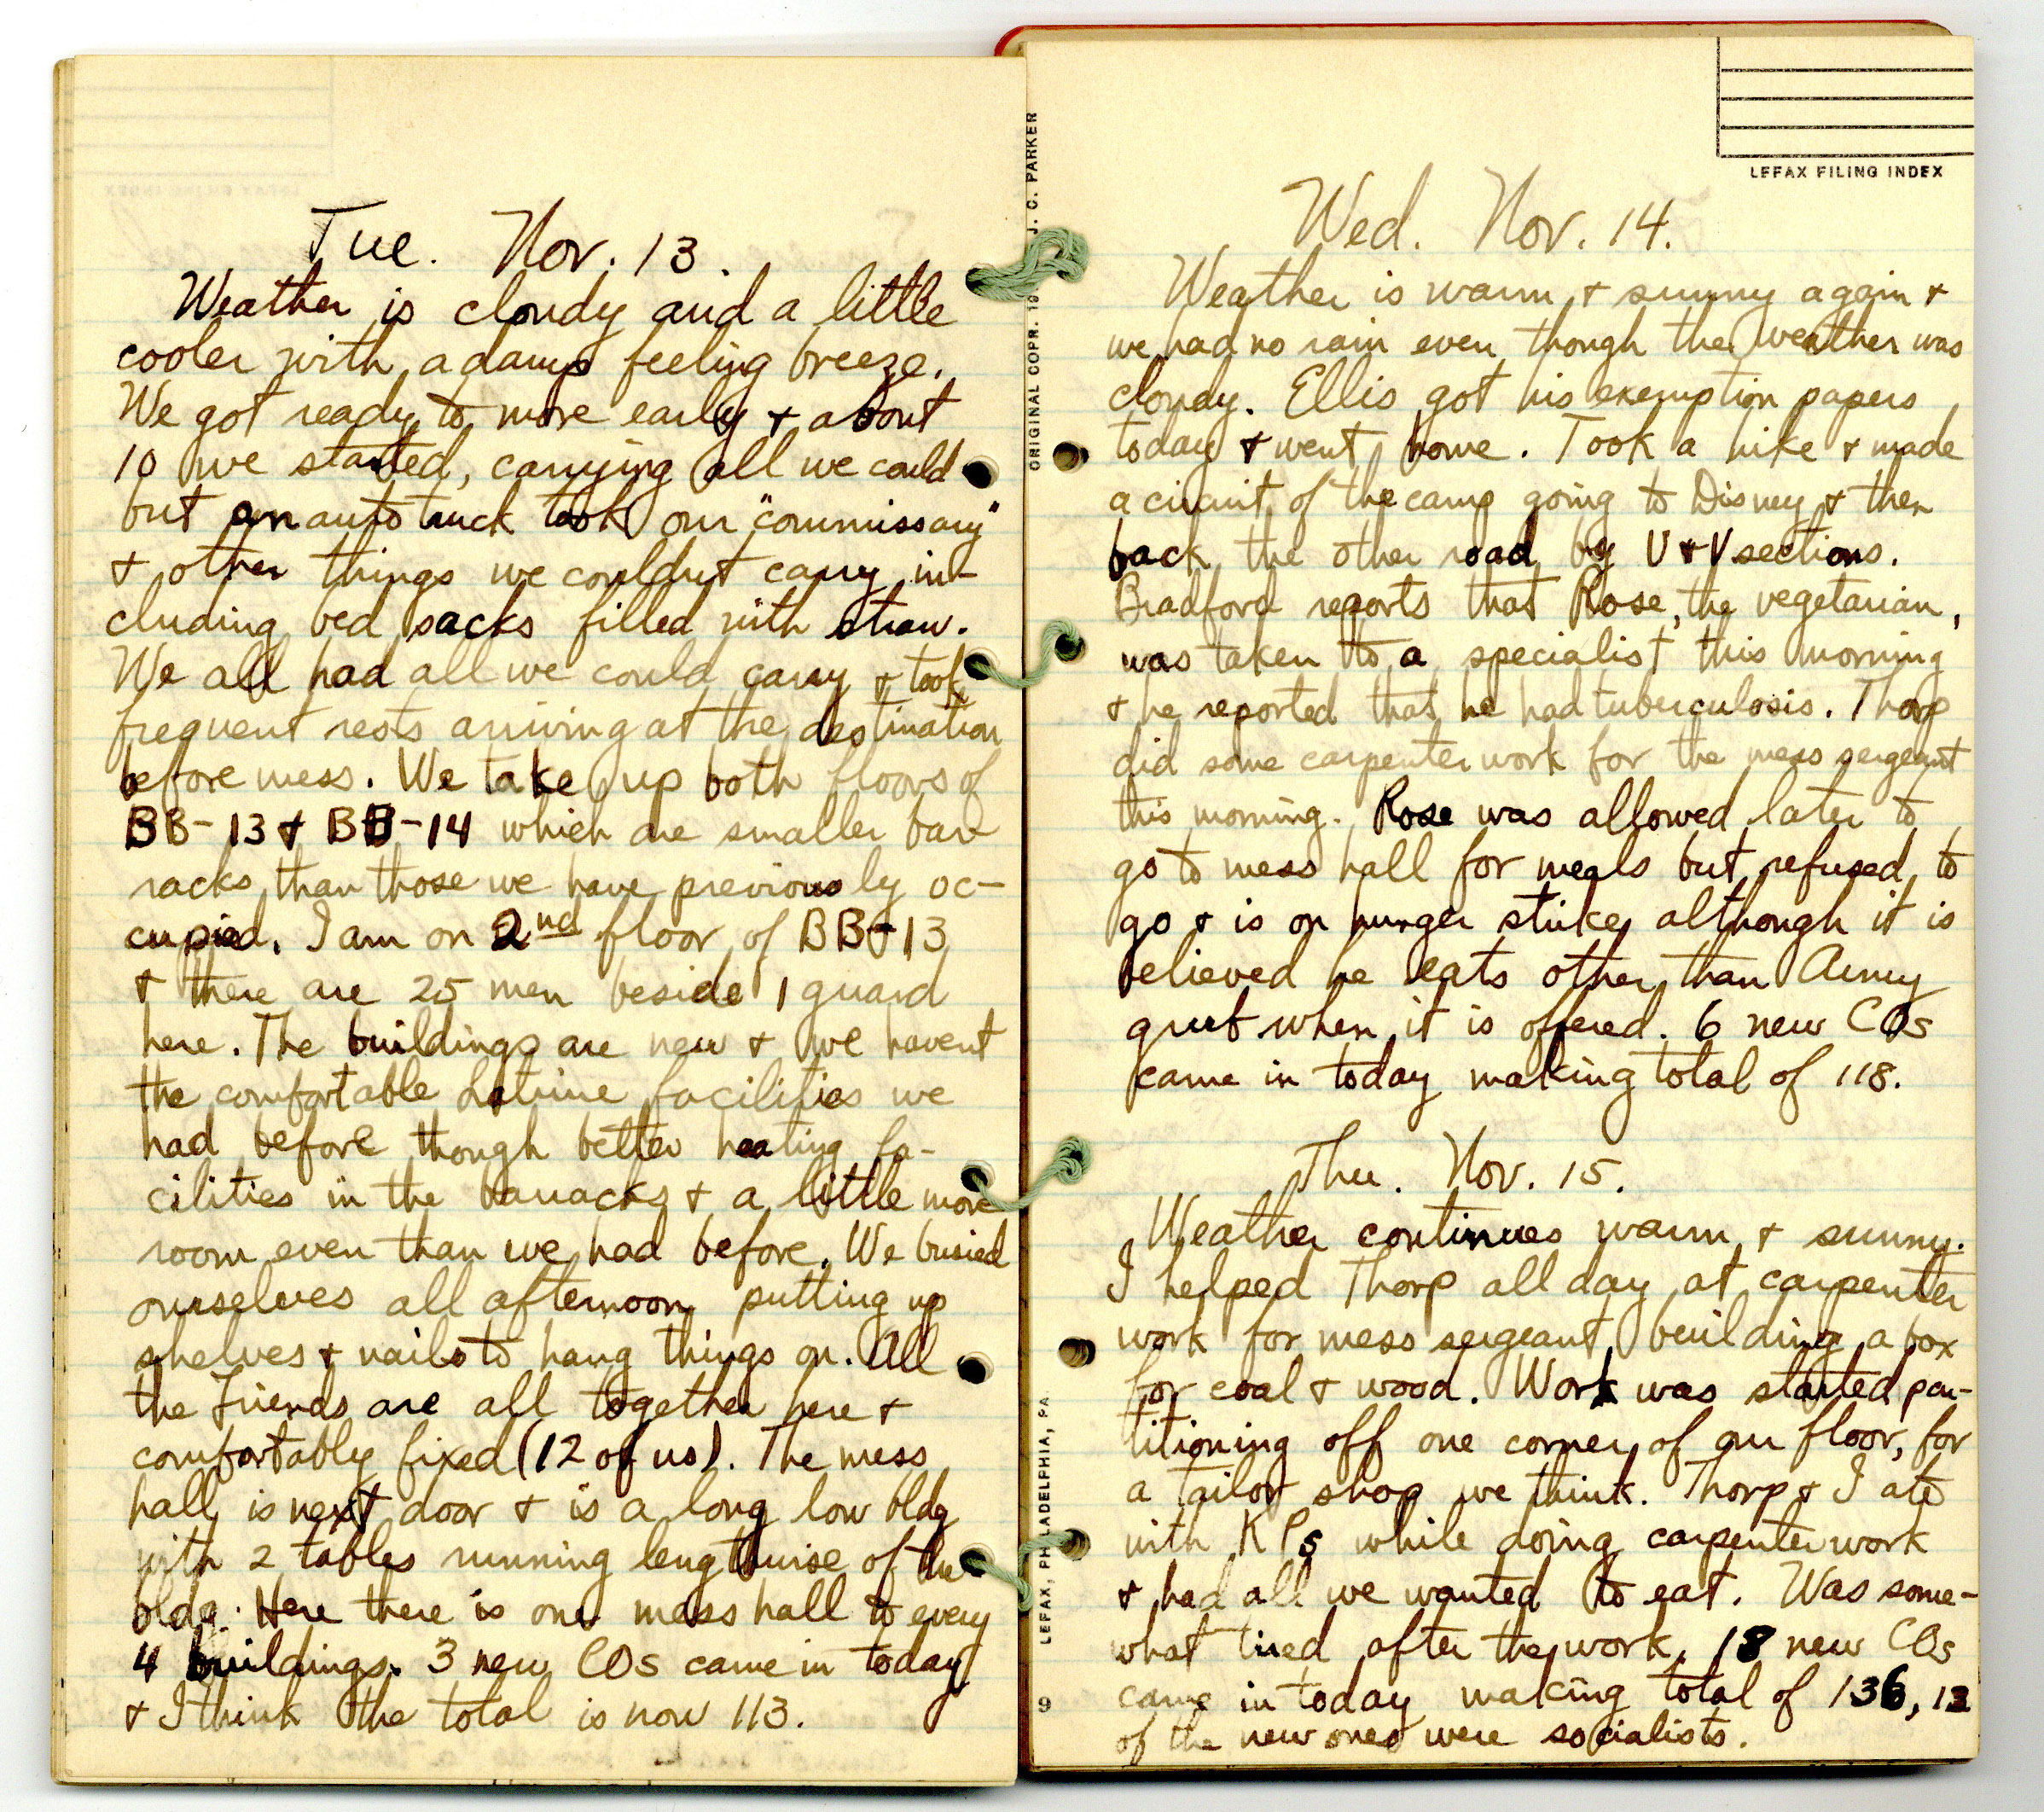 Tue. Nov. 13.
Weather is cloudy and a little
cooler with a damp feeling breeze.
We got ready to move early & about
10 we started, carrying all we could
but an auto truck took our "commissary"
& other things we couldn't carry in-
cluding bed sacks filled with straw.
We all had all we could carry & took
frequent rests arriving at the destination
before mess. We take up both floors of
BB-13 & BB-14 which are smaller bar
racks than those we have previously oc-
cupied. I am on 2nd floor of BB-13
& there are 25 men beside 1 guard
here. The buildings are new & we havent
the comfortable Latrine facilities we
had before though better heating fa-
cilities in the barracks & a little more
room even than we had before. We busied
ourselves all afternoon putting up
shelves & nails to hang things on. All
the Friends are all together here &
comfortably fixed (12 of us). The mess
hall is next door & is a long low bldg
with 2 tables running lengthwise of the
bldg. Here there is one mess hall to every
4 buildings. 3 new COs came in today
& I think the total is now 113.
ORIGINAL COPR. 19 J. C. PARKER
LEFAX FILING INDEX
Wed. Nov. 14.
Weather is warm & sunny again &
we had no rain even though the weather was
cloudy. Ellis got his exemption papers
today & went home. Took a hike & made
a circuit of the camp going to Disney & then
back the other road by U & V sections.
Bradford reports that Rose, the vegetarian,
was taken to a specialist this morning
& he reported that he had tuberculosis. Thorp
did some carpenter work for the mess sergeant
this morning. Rose was allowed later to
go to mess hall for meals but refused to
go & is on hunger strike although it is
believed he eats other than Army
grub when it is offered. 6 new COs
came in today making total of 118.
Thu. Nov. 15.
Weather continues warm & sunny.
I helped Thorp all day at carpenter
work for mess sergeant building a box
for coal & wood. Work was started par-
titioning off one corner of our floor, for
a tailor shop we think. Thorp & I ate
with KPs while doing carpenter work
& had all we wanted to eat. Was some-
what tired after the work. 18 new COs
came in today making total of 136, 12
of the new ones were socialists.
LEFAX, PHILADELPHIA, PA
9